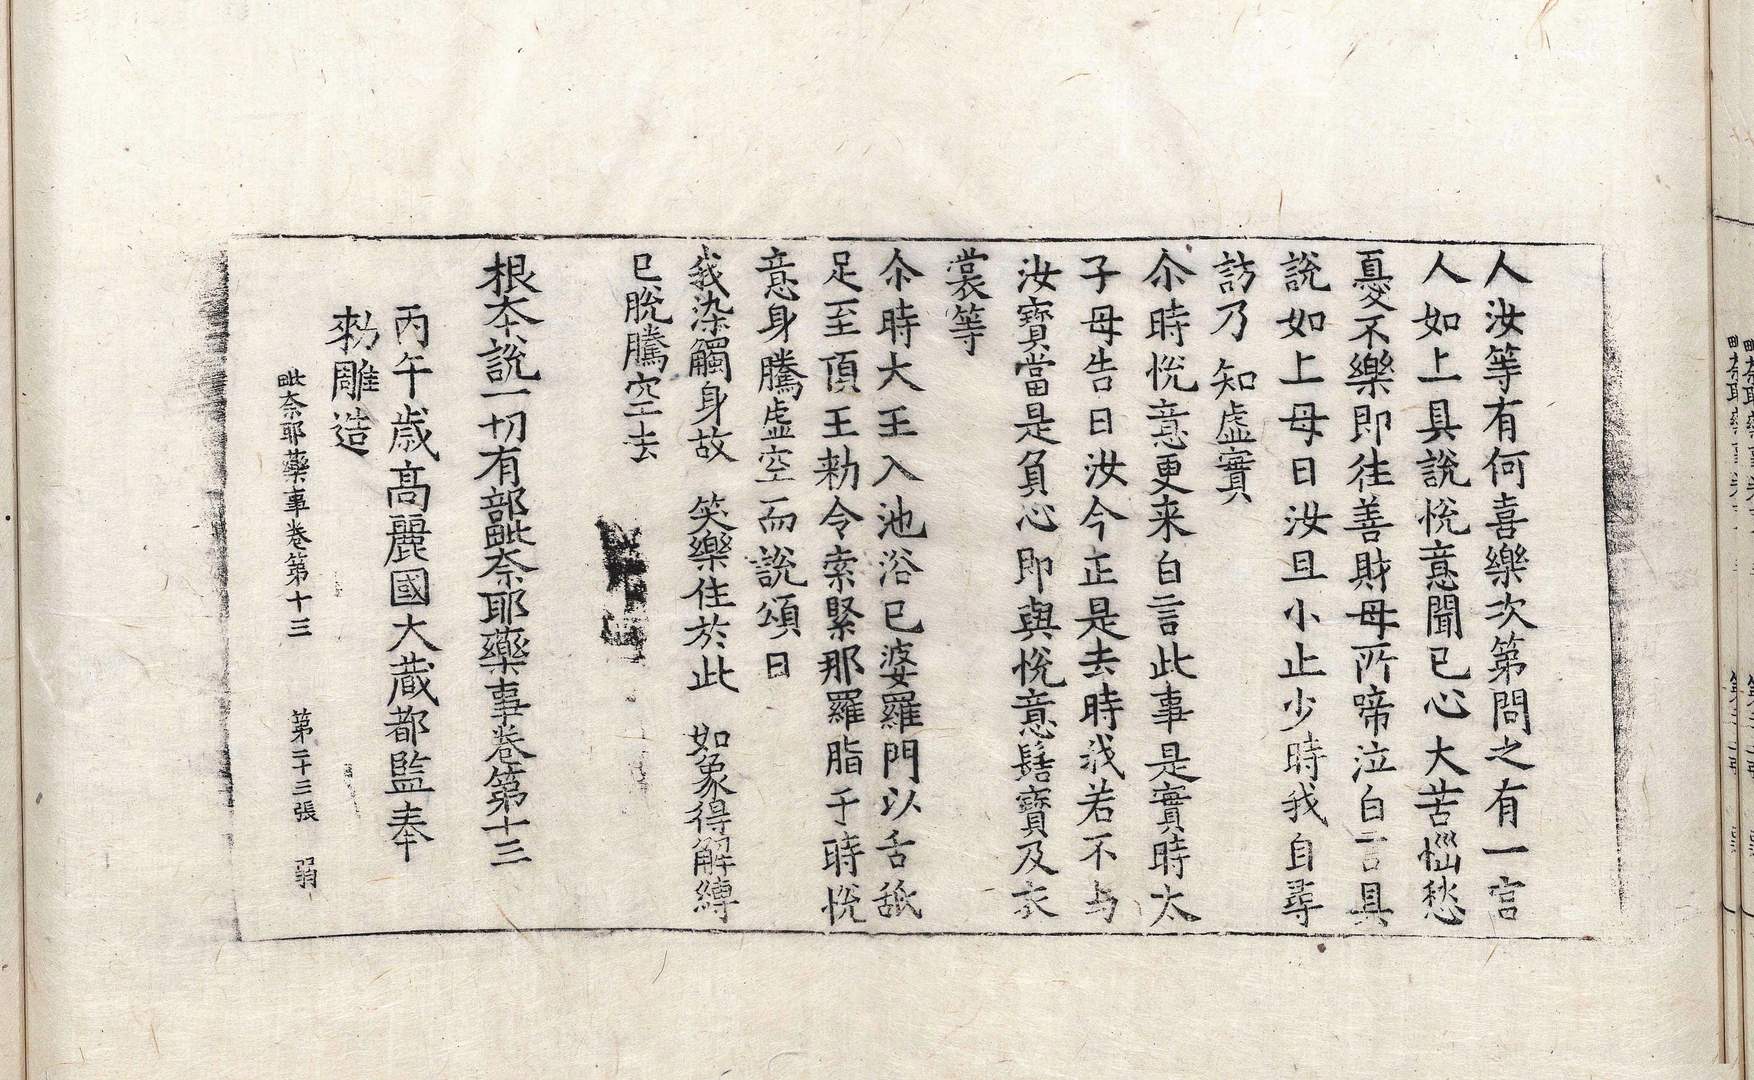 人汝等有何喜樂次第問之有一宫
人如上具說悅意聞已心大苦惱愁
憂不樂即往善財母所啼泣白言具
說如上母曰汝且小止少時我自尋
訪乃知虛實
尒時悅意更来白言此事是實時太
子母告曰汝今正是去時我若不与
汝寶當是負心即與悅意髻寶及衣
裳等
尒時大王入池浴已婆羅門以舌舐
足至頂王勑令索緊那羅脂于時悅
意身騰虛空而說頌曰
我染觸身故 笑樂住於此 如象得解縛
已脫騰空去
根夲說一切有部毗奈耶藥事卷第十三
丙午歳高麗國大蔵都監奉
勑雕造
毗奈耶藥事卷第十三 第二十三張 弱